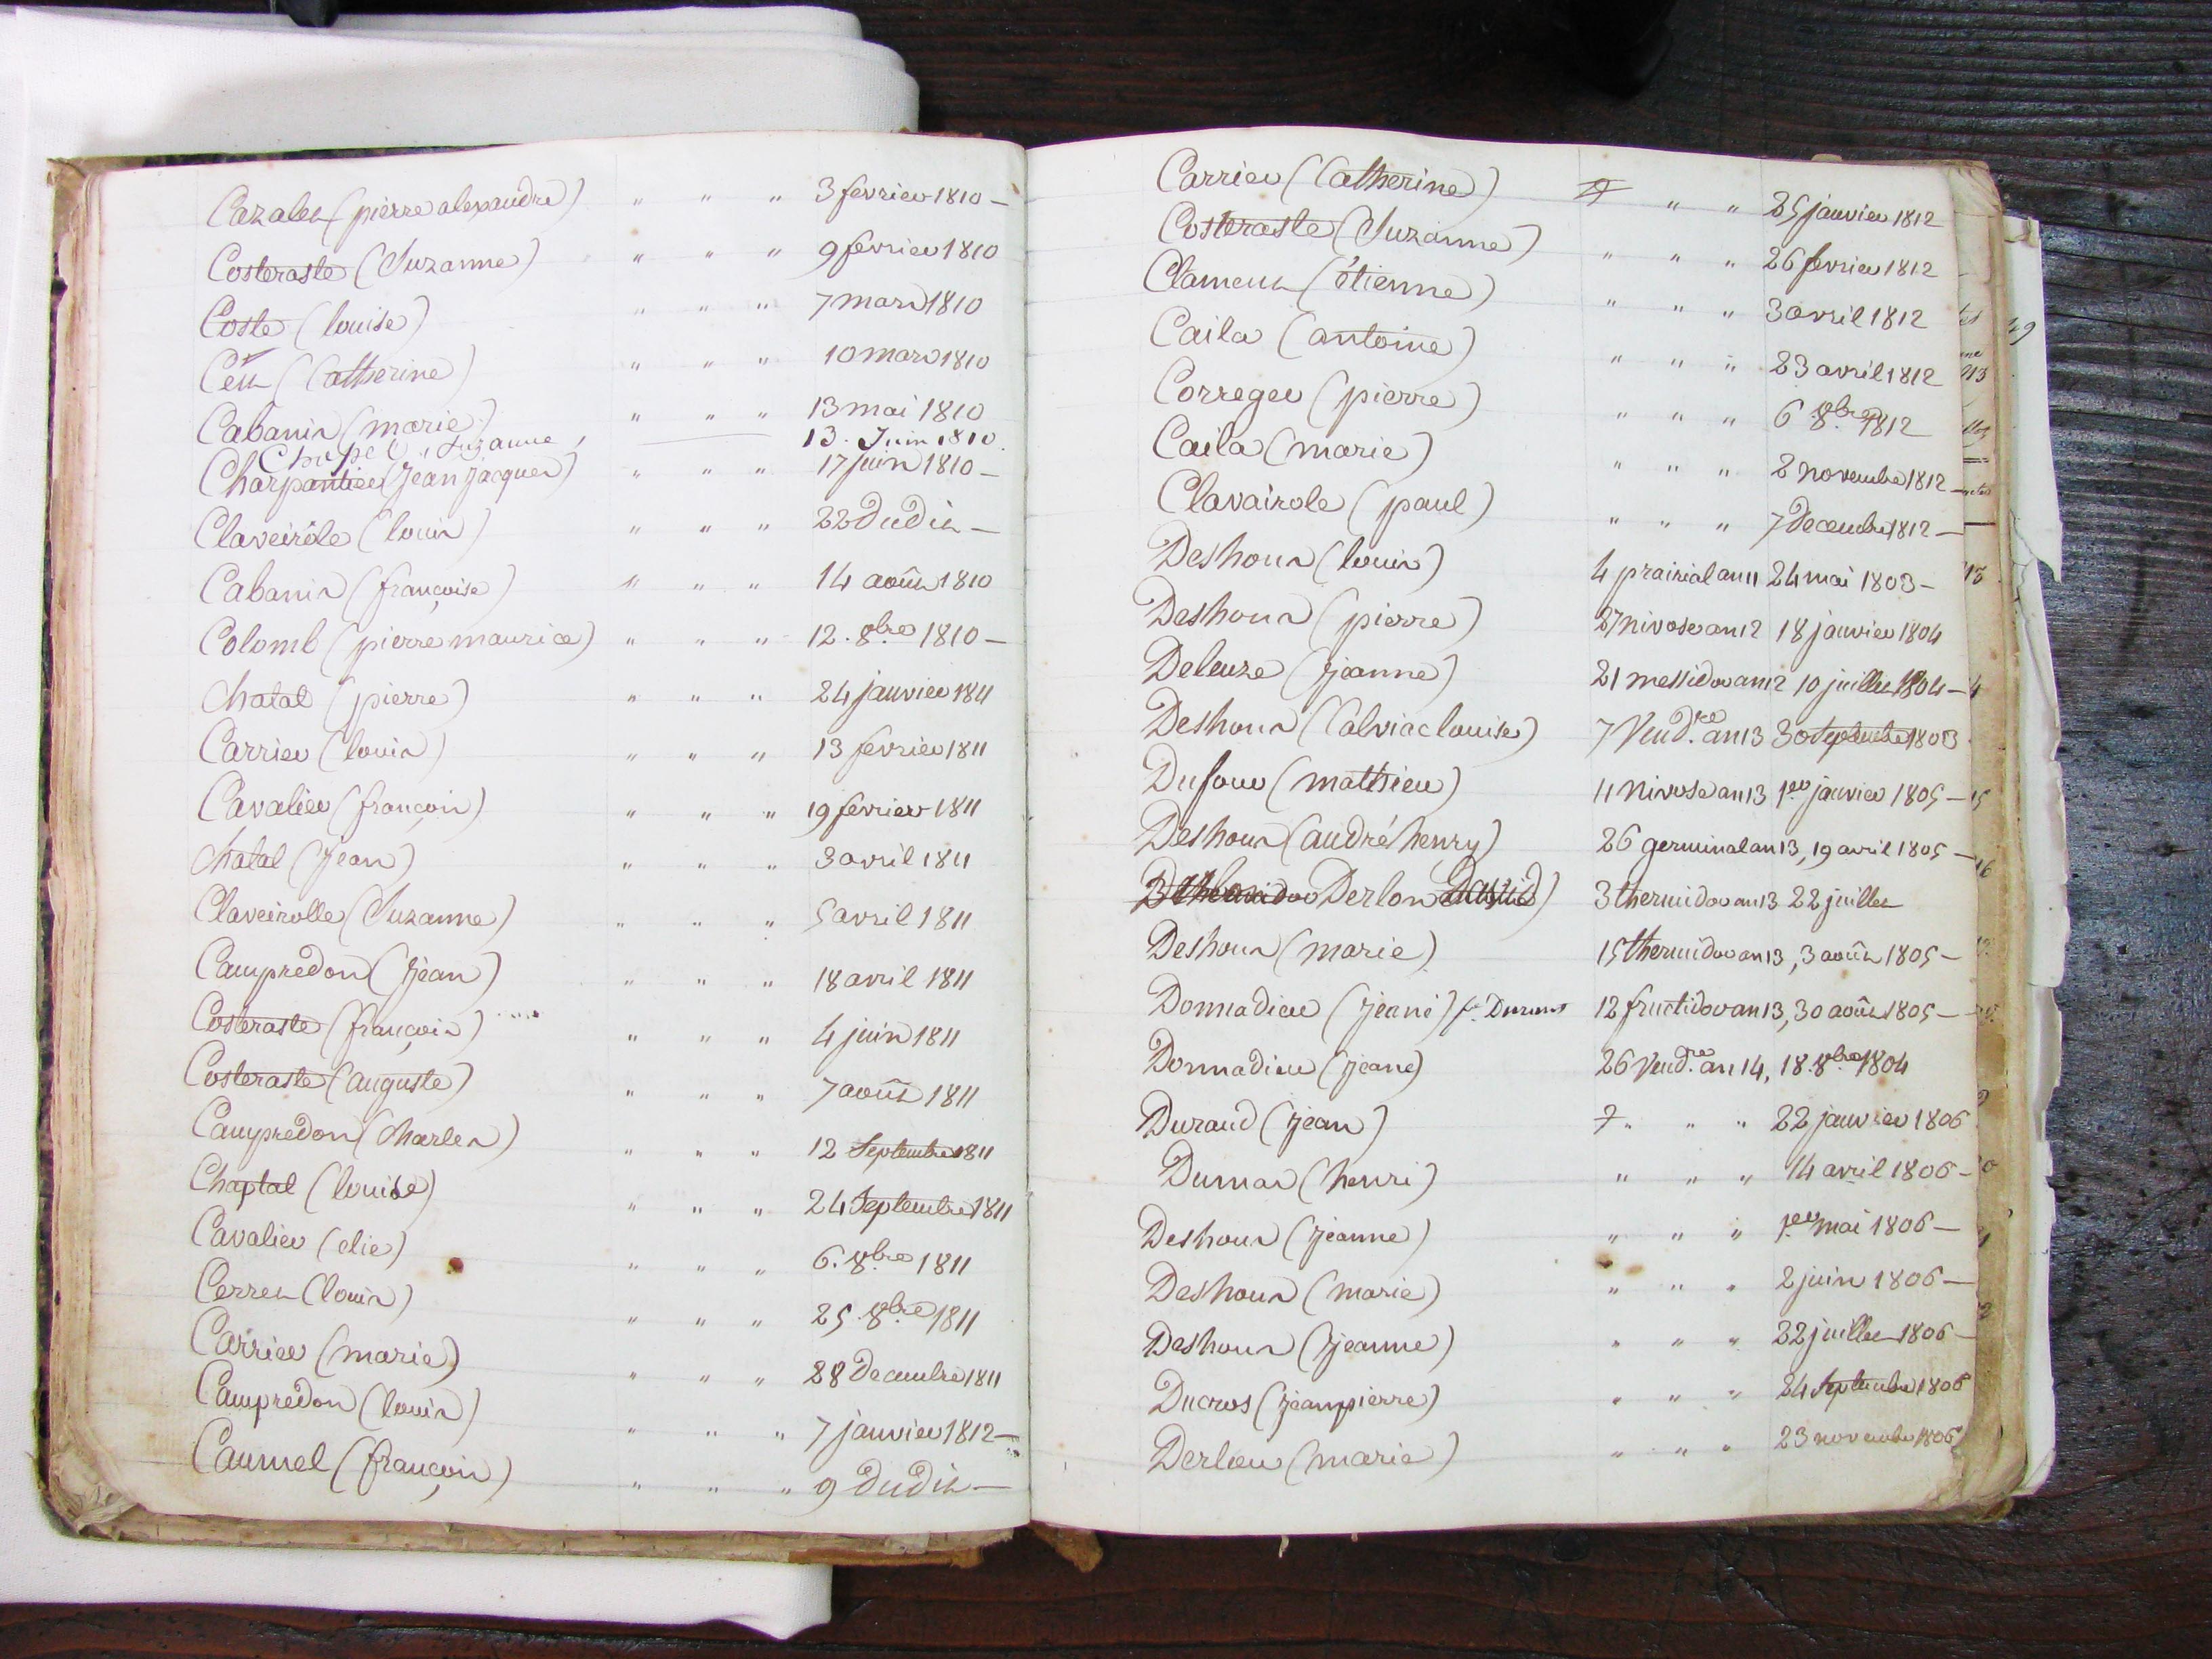 Cazales (pierre alexandre) " " " 3 fevrier 1810 –
Costeraste (Suzanne) " " " 9 fevrier 1810
Coste (louise) " " " 7 mars 1810
(Catherine) " " " 10 mars 1810
Cabanis (marie) " " " 13 mai 1810
Chapel, Suzanne, 13. Juin 1810.
Charpantier (Jean Jacques) " " " 17 juin 1810 –
Claveirole (louis) " " " 22 dudit –
Cabanis (françoise) " " " 14 août 1810
Colomb (pierre maurice) " " " 12. 8bre 1810 –
Chatal (pierre) " " " 24 janvier 1811
Carrier (louis) " " " 13 fevrier 1811
Cavalier (françois) " " " 19 fevrier 1811
Chatal (Jean) " " " 3 avril 1811
Claveirolle (Suzanne) " " " 5 avril 1811
Campredon (Jean) " " " 18 avril 1811
Costeraste (françois) " " " 4 juin 1811
Costeraste (auguste) " " " 7 août 1811
Campredon (Charles) " " " 12 Septembre 1811
Chaptal (louise) " " " 24 Septembre 1811
Cavalier (elie) " " " 6. 8bre 1811
Cerret (louis) " " " 25. 8bre 1811
Carrier (marie) " " " 28 Decembre 1811
Campredon (louis) " " " 7 janvier 1812 –
Caumel (françois) " " " 9 dudit –
Carrier (Catherine) " " 25 janvier 1812
Costeraste (Suzanne) " " " 26 fevrier 1812
Clament (étienne) " " " 3 avril 1812
Caila (antoine) " " " 23 avril 1812
Correger (pierre) " " " 6 8bre 1812
Caila (marie) " " " 2 novembre 1812 –
Clavairole (paul) " " " 7 Decembre 1812 –
Deshours (louis) 4 prairial an 11 24 mai 1803 –
Deshours (pierre) 27 nivose an 12 18 janvier 1804
Deleuze (jeanne) 21 messidor an 12 10 juillet 1804 –
Deshours (Calviac louise) 7 Vend.re an 13 30 Septembre 1803
Dufour (mathieu) 11 nivose an 13 1er janvier 1805 –
Deshours (andré henry) 26 germinal an 13, 19 avril 1805 –
Derlon David) 3 thermidor an 13 22 juillet
Deshours (marie) 15 thermidor an 13, 3 août 1805 –
Donnadieu (jeane) fe. Durant 12 fructidor an 13, 30 août 1805 –
Donnadieu (jeane) 26 Vend.re an 14, 18. 8bre 1804
Durand (jean) " " " 22 janvier 1806
Dumas (henri) " " " 14 avril 1806 –
Deshours (jeanne) " " " 1er mai 1806 –
Deshours (marie) " " " 2 juin 1806 –
Deshours (jeanne) " " " 22 juillet 1806 –
Ducros (jean pierre) " " " 24 Septembre 1806
Derleu (marie) " " " 23 novembre 1806